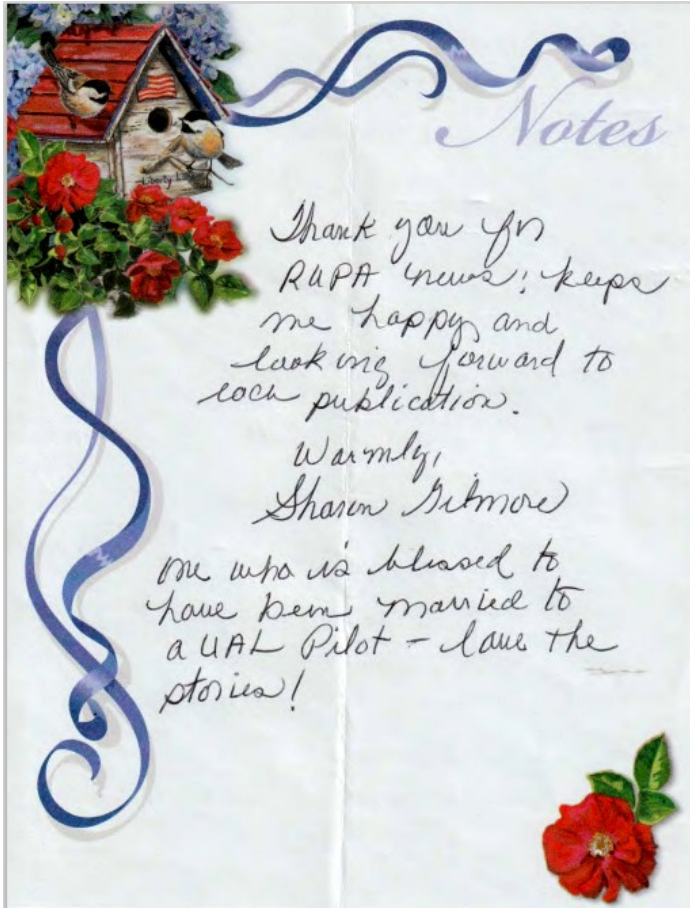 Notes
Liberty
Thank you for
RUPA news! keeps
me happy and
looking forward to
each publication.
Warmly,
Sharon Gilmore
One who is blessed to
have been married to
a UAL Pilot – love the
stories!